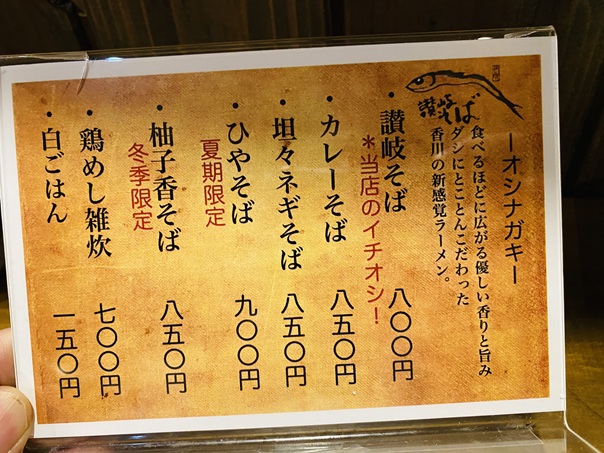 ーオシナガキー
讃岐そば
食べるほどに広がる優しい香りと旨み
ダシにとことんこだわった
香川の新感覚ラーメン。
・讃岐そば 八〇〇円
＊当店のイチオシ！
・カレーそば 八五〇円
・坦々ネギそば 八五〇円
・ひやそば 九〇〇円
夏期限定
・柚子香そば 八五〇円
冬季限定
・鶏めし雑炊 七〇〇円
・白ごはん 一五〇円